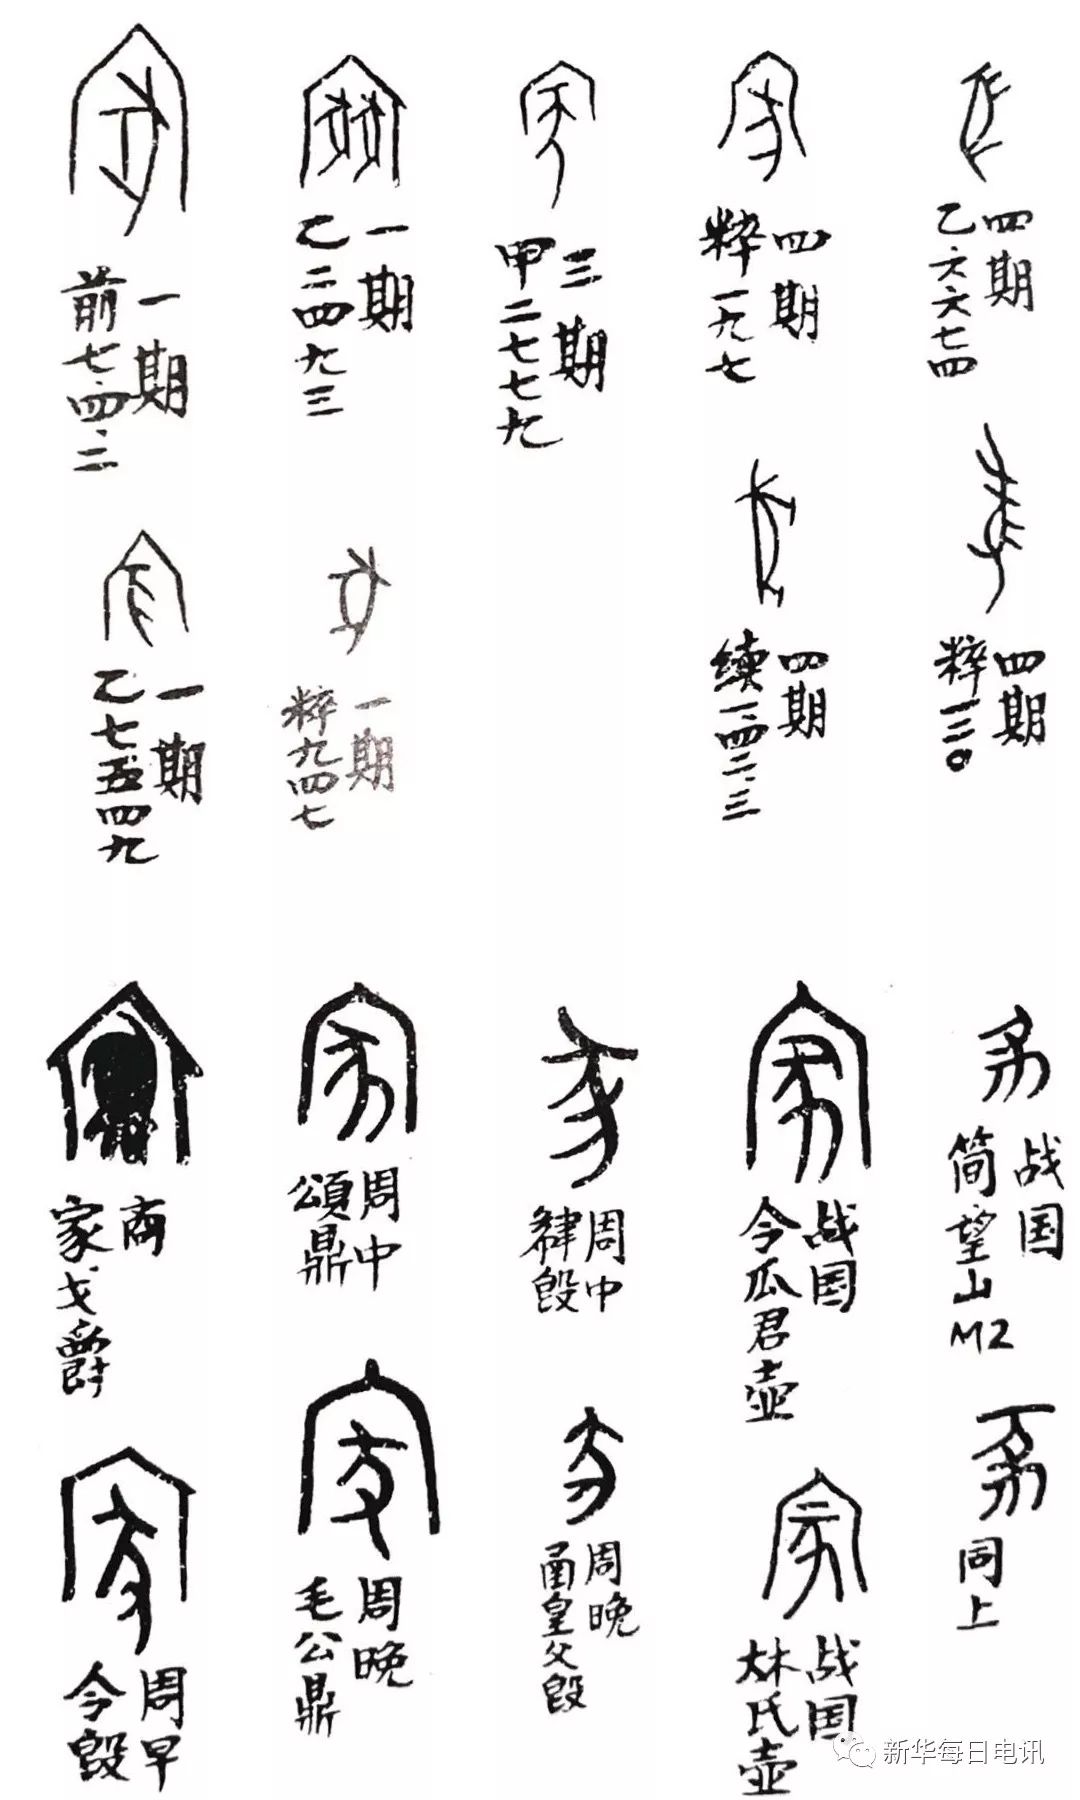 一期
前七.四.二
一期
乙二四九三
三期
甲二七七九
四期
粹一九七
四期
乙六六七四
一期
乙七五四九
一期
粹九四七
四期
续一.四二.三
四期
粹一三〇
商
家戈爵
周中
頌鼎
周中
肄𣪘
战国
令瓜君壶
战国
简望山M2
周早
令𣪘
周晚
毛公鼎
周晚
圅皇父𣪘
战国
林氏壶
同上
新华每日电讯